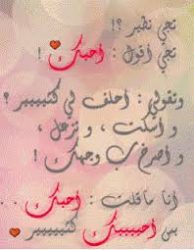 تجي نطير ؟!
تجي أقول : احبك !
وتقولي : احلف لي كثييييير ؟
و اسكت ، و تزعل ،
و اصرخ ب وجهك !
أنا ما قلت : احبك . .
بس احبييييك كثييييير